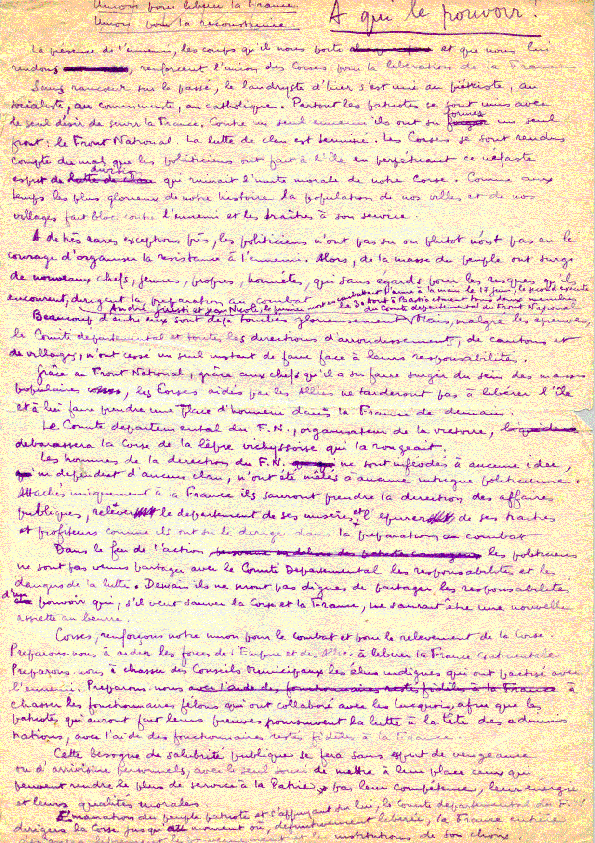 Unions pour libérer la France
Unions pour la reconstruire
A qui le pouvoir !
La présence de l'ennemi, les coups qu'il nous porte et que nous lui
rendons, renforcent l'union des Corses pour la libération de la France
Sans rancœur sur le passé, le landryste d'hier s'est uni au piétriste, au
socialiste, au communiste, au catholique. Partout les patriotes se sont unis avec
le seul désir de servir la France. Contre un seul ennemi ils ont su formé un seul
front : le Front National. La lutte de clan est terminée. Les Corses se sont rendus
compte du mal que les politiciens ont fait à l'île en perpétuant ce néfaste
esprit de division qui ruinait l'unité morale de notre Corse. Comme aux
temps les plus glorieux de notre histoire la population de nos villes et de nos
villages fait bloc contre l'ennemi et les traîtres à son service.
A de très rares exceptions près, les politiciens n'ont pas su ou plutôt n'ont pas eu le
courage d'organiser la résistance à l'ennemi. Alors, de la masse du peuple ont surgi
de nouveaux chefs, jeunes, propres, honnêtes, qui sans égards pour les risques qu'ils
encourent, dirigent la préparation au combat.
le 17 juin, le second exécuté
André Giusti et Jean Nicoli, le premier
le 30 Août à Bastia étaient tous deux membres
du Comité départemental du Front National
Beaucoup d'entre eux sont déjà tombés glorieusement. Mais, malgré les épreuves,
le Comité départemental et toutes les directions d'arrondissement, de cantons et
de villages, n'ont cessé un seul instant de faire face à leurs responsabilités.
Grâce au Front National, grâce aux chefs qu'il a su faire surgir du sein des masses
populaires, les Corses aidés par les Alliés ne tarderont pas à libérer l'île
et à lui faire prendre une place d'honneur dans la France de demain.
Le Comité départemental du F.N., organisateur de la victoire,
débarassera la Corse de la lèpre vichyssoise qui la rongeait.
Les hommes de la direction du F.N. ne sont inféodés à aucune idée,
ni dépendent d'aucun clan, n'ont été mêlés à aucune intrigue politicienne.
Attachés uniquement à la France ils sauront prendre la direction des affaires
publiques, relever le département de ses misères et l'épurer de ses traîtres
et profiteurs comme ils ont su le diriger dans la préparation au combat
Dans le feu de l'action les politiciens
ne sont pas venus partager avec le Comité Départemental les responsabilités et les
dangers de la lutte. Demain ils ne seront pas dignes de partager les responsabilités
d'un pouvoir qui, s'il veut sauver la Corse et la France, ne saurait être une nouvelle
assiette au beurre.
Corses, renforçons notre union pour le combat et pour le relèvement de la Corse.
Préparons-nous à aider les forces de l'Empire et des Alliés à libérer la France continentale
Préparons-nous à chasser des Conseils Municipaux les élus indignes qui ont pactisé avec
l'ennemi. Préparons-nous avec l'aide des fonctionnaires restés fidèles à la France à
chasser les fonctionnaires félons qui ont collaboré avec les lucquois, afin que les
patriotes qui auront fait leurs preuves poursuivent la lutte à la tête des adminis
trations, avec l'aide de fonctionnaires restés fidèles à la France.
Cette besogne de salubrité publique se fera sans esprit de vengeance
ou d'arrivisme personnels, avec le seul souci de mettre à leur place ceux qui
peuvent rendre le plus de service à la Patrie, par leur compétence, leur énergie
et leurs qualités morales
Emanation du peuple patriote et s'appuyant sur lui, le Comité départemental du F.N
dirigera la Corse jusqu'au moment où, définitivement libérée, la France entière
librement le gouvernement et les institutions de son choix.